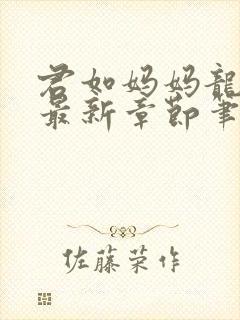 君如妈妈龍
最新章節笔
佐藤荣作